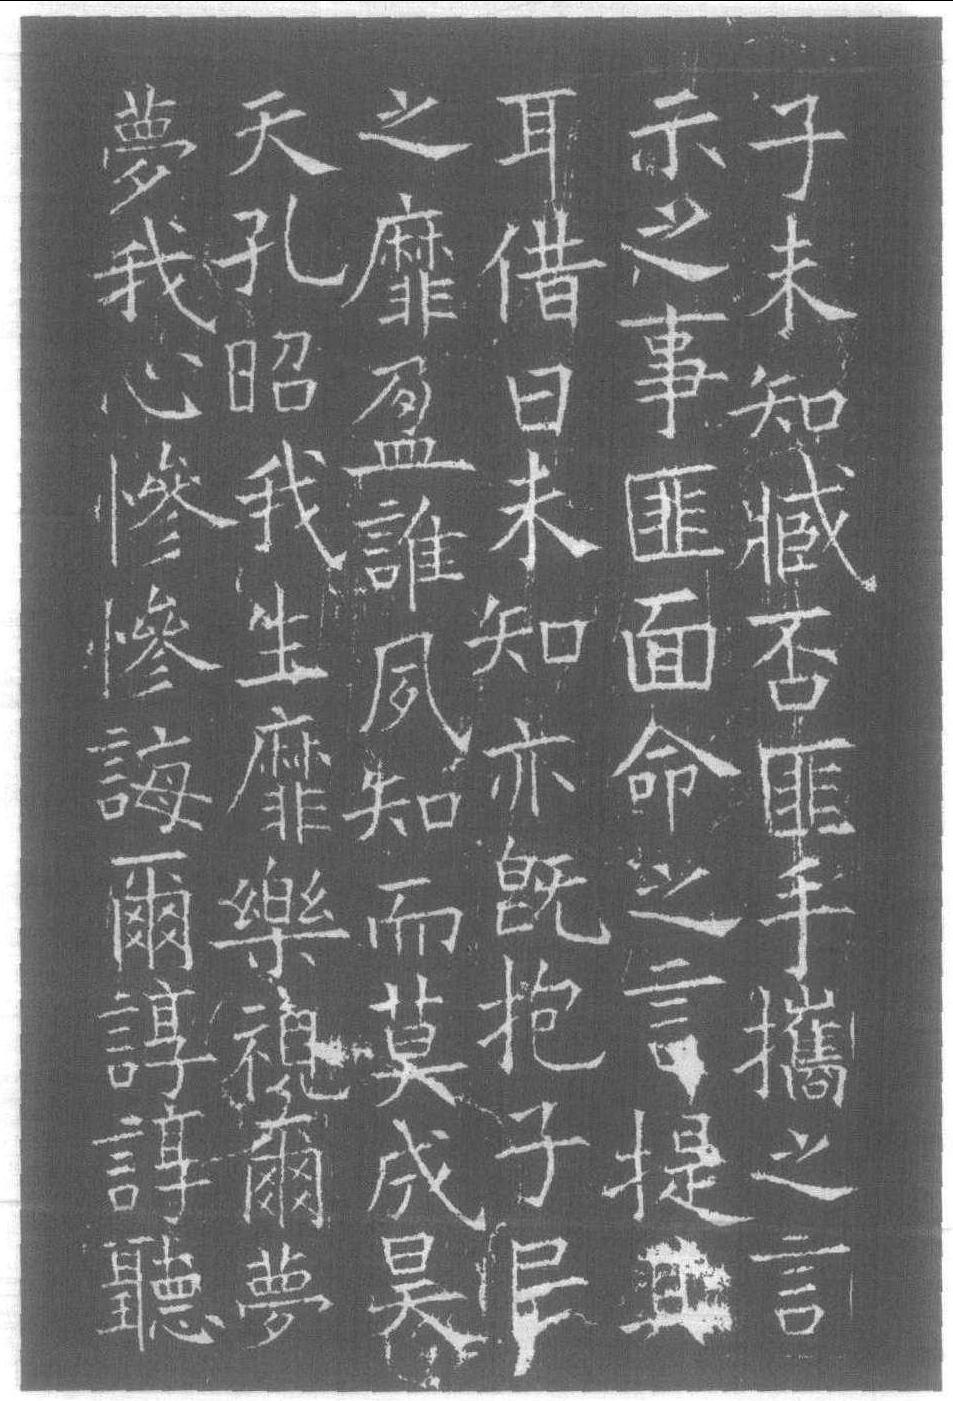 子未知臧否匪手攜之言
示之事匪面命之言提其
耳借曰未知亦既抱子民
之靡盈誰夙知而莫成昊
天孔昭我生靡樂視爾夢
夢我心慘慘誨爾諄諄聽